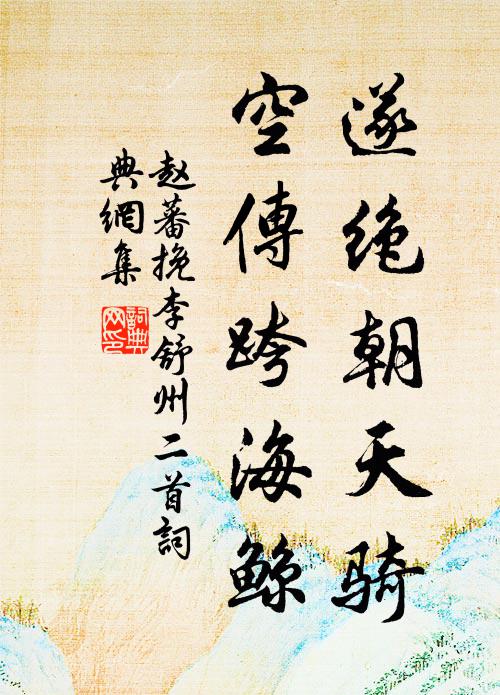 遂绝朝天骑
空傳跨海鲸
赵蕃挽李舒州二首詞
典網集
詞典
网印